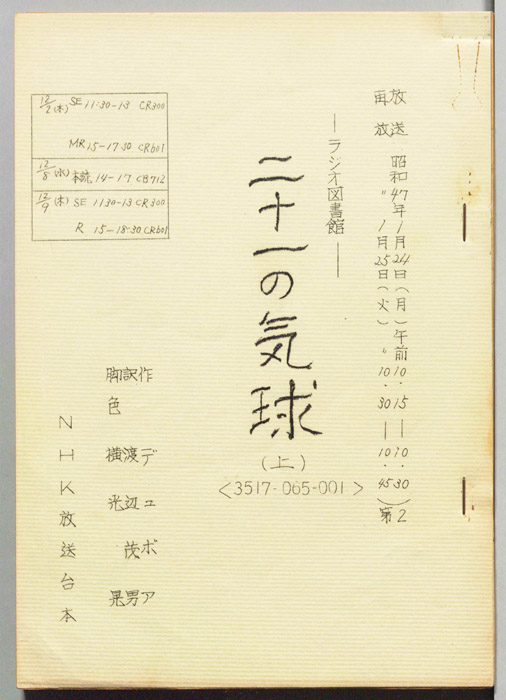 放送 昭和47年1月24日(月)午前10.15―10.30
再放 〃 1月25日(火) 〃 10.30―10.45
第2
―ラジオ図書館―
二十一の気球
(上)
<3517-065-001>
作 デュボア
訳 渡辺茂男
脚色 横光晃
NHK放送台本
12/2(木) SE 11:30-13 CR300
MR 15-17:30 CR601
12/8(水) 本読 14-17 CB712
12/9(木) SE 1130-13 CR300
R 15-18:30 CR601